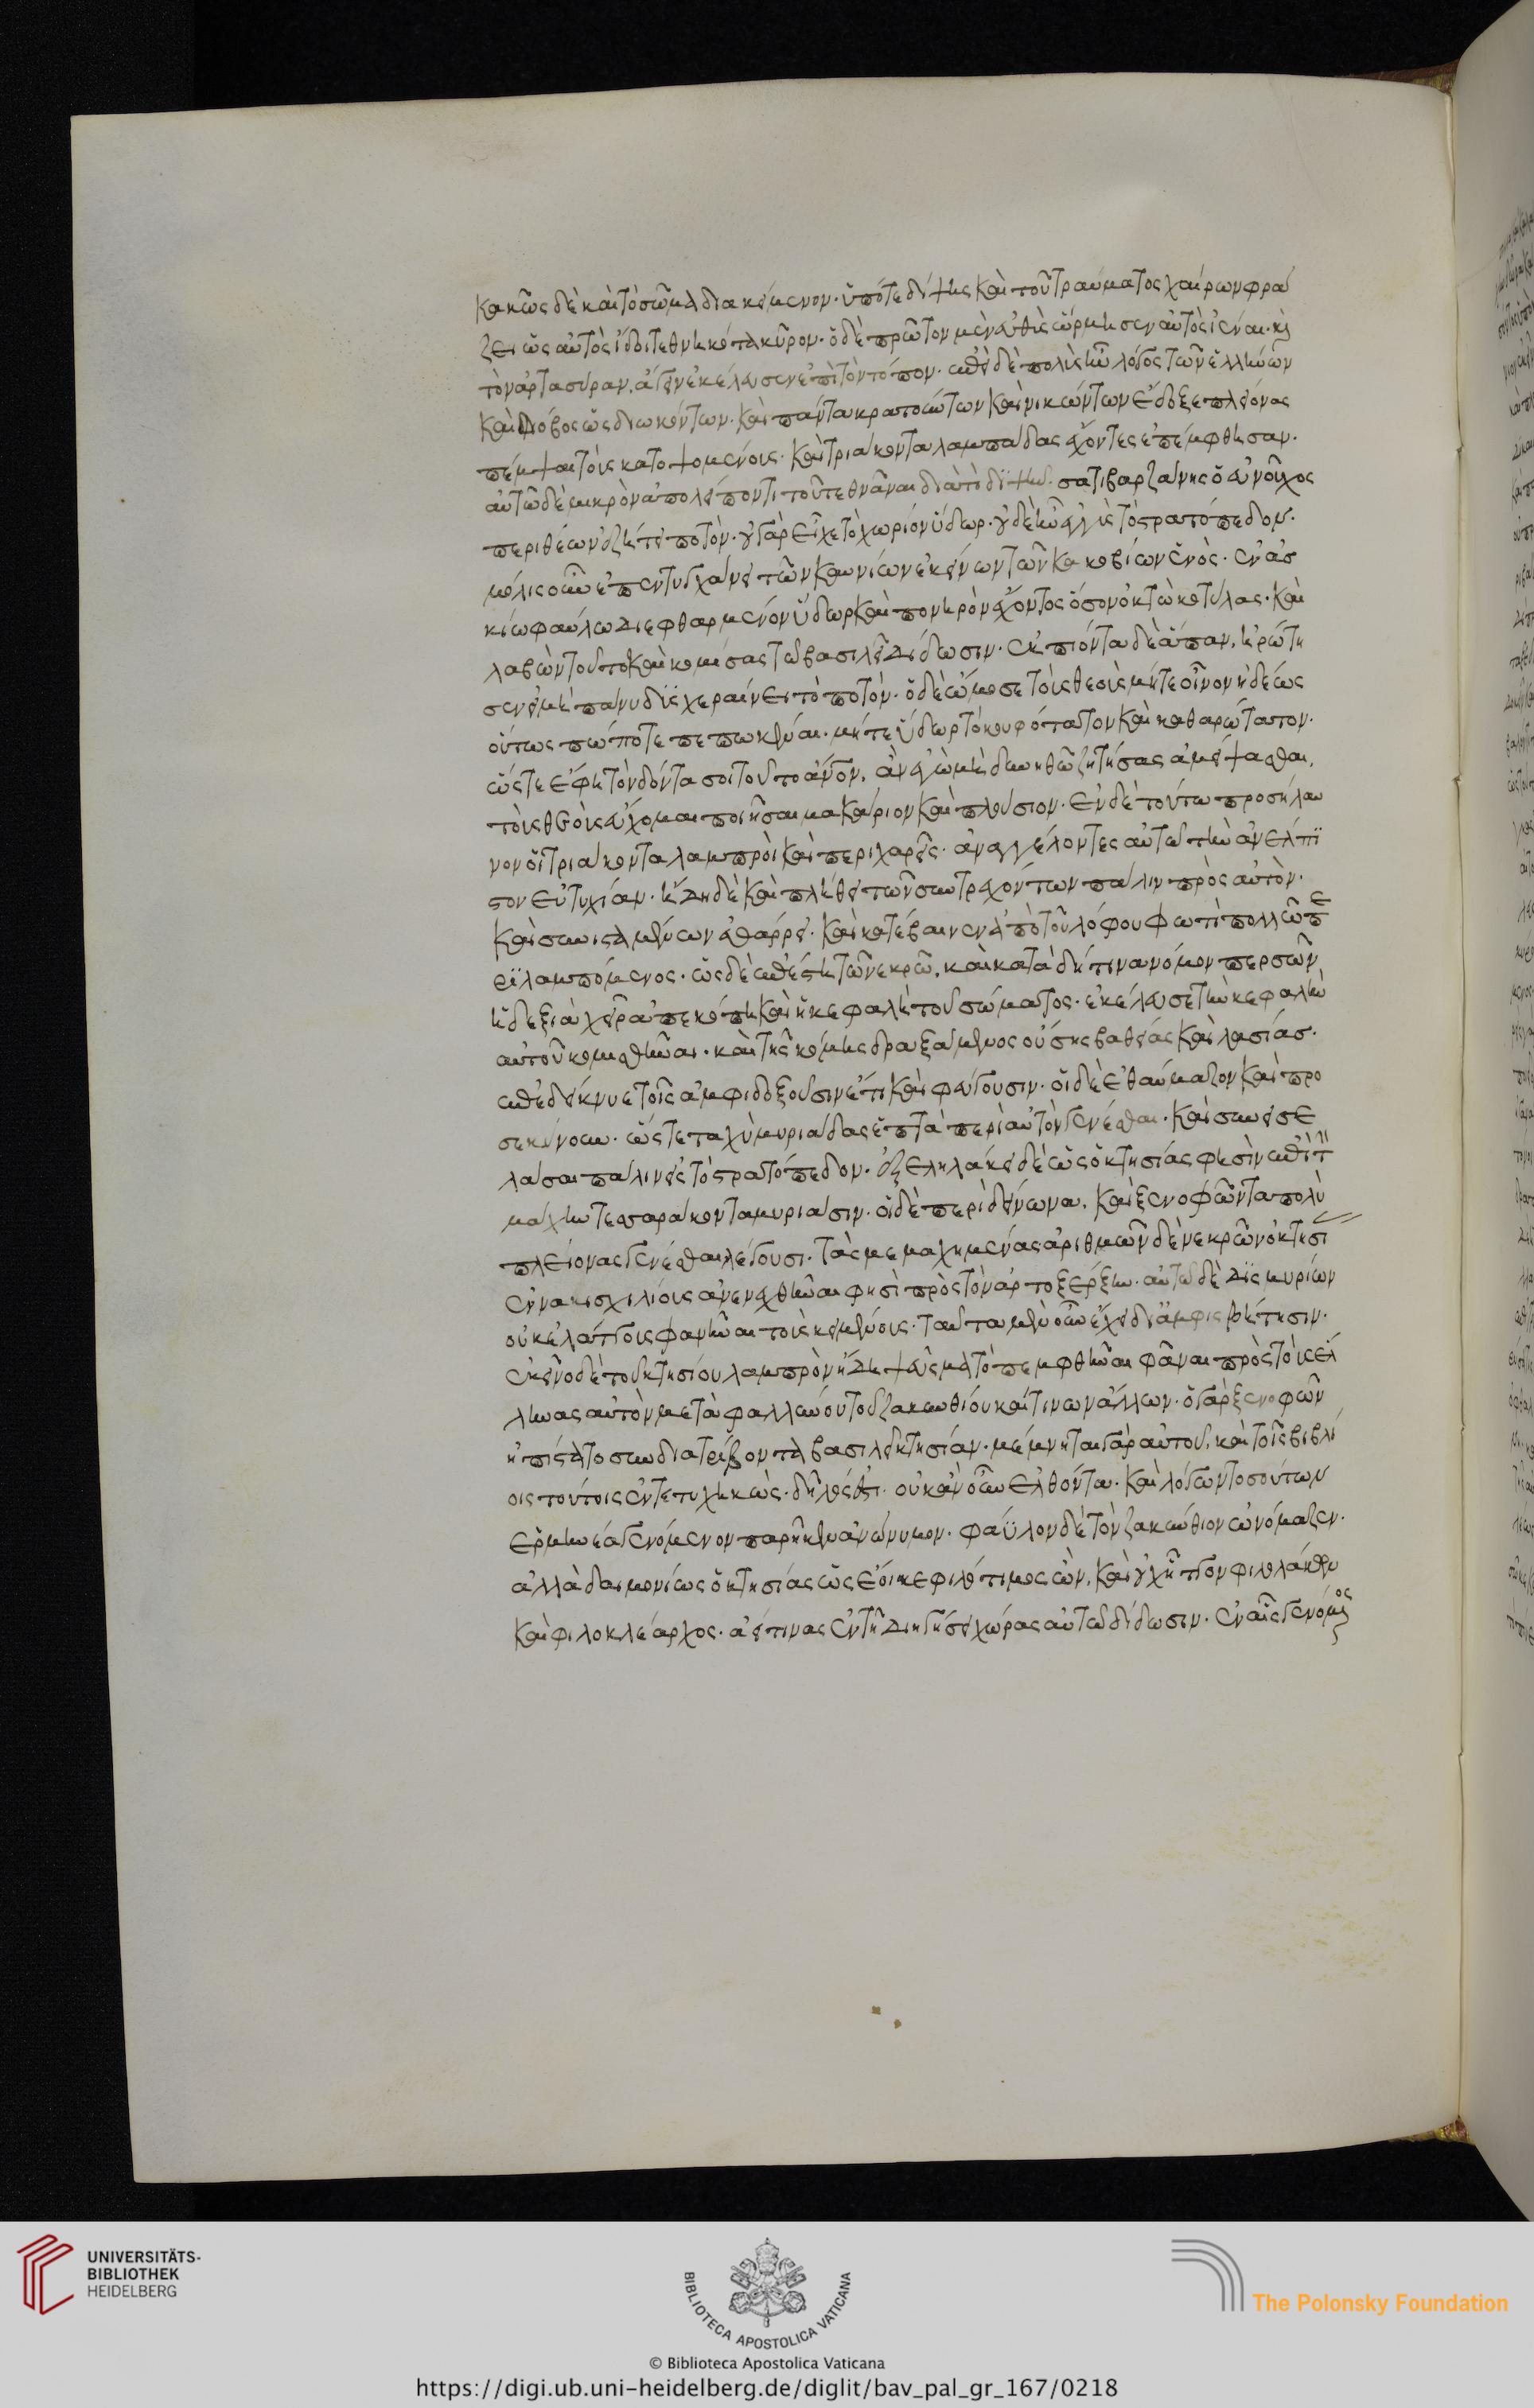 κακῶς δὲ καὶ τὸ σῶμα διακείμενον· ὑπό τε δίψης καὶ τοῦ τραύματος χαίρων φρά
ζει ὡς αὐτὸς ἴδοι τεθνηκότα κῦρον· ὁ δὲ πρῶτον μὲν εὐθὺς ὥρμησεν αὐτὸς ἰέναι· καὶ
τὸν ἀρτασύραν, ἄγειν ἐκέλευσεν ἐπὶ τὸν τόπον· ἐπεὶ δὲ πολὺς ἦν λόγος τῶν ἑλλήνων
καὶ φόβος ὡς διωκόντων· καὶ πάντα κρατούντων καὶ νικώντων ἔδοξε πλείονας
πέμψαι τοὺς κατοψομένους· καὶ τριάκοντα λαμπάδας ἔχοντες ἐπέμφθησαν·
αὐτῶ δὲ μικρὸν ἀπολείποντι τοῦ τεθνᾶναι διὰ τὸ διψῆν· σατιβαρζάνης ὁ εὐνοῦχος
περιθέων ἐζήτει ποτὸν· οὐ γὰρ εἶχε τὸ χωρίον ὕδωρ· οὐδὲ ἦν ἐγγὺς τὸ στρατόπεδον·
μόλις οὖν ἐπεντυγχάνει τῶν καυνίων ἐκείνων τῶν κακοβίων ἑνὸς· ἐν ἀσ
κίω φαύλω διεφθαρμένον ὕδωρ καὶ πονηρὸν ἔχοντος ὅσον ὀκτὼ κοτύλας· καὶ
λαβὼν τοῦτο καὶ κομίσας τῶ βασιλεῖ δίδωσιν· ἐκπιόντα δὲ ἅπαν, ἠρώτη
σεν εἰ μὴ πάνυ δυσχεραίνει τὸ ποτὸν· ὁ δὲ ὤμοσε τοὺς θεοὺς μήτε οἶνον ἡδέως
οὕτως πώποτε πεπωκέναι· μήτε ὕδωρ τὸ κουφότατον καὶ καθαρώτατον·
ὥστε ἔφη τὸν δόντα σοι τοῦτο ἄνθρωπον, ἂν ἐγὼ μὴ δυνηθῶ ζητήσας ἀμείψασθαι,
τοὺς θεοὺς εὔχομαι ποιῆσαι μακάριον καὶ πλούσιον· ἐν δὲ τούτω προσήλαυ
νον οἱ τριάκοντα λαμπροὶ καὶ περιχαρεῖς· ἀναγγέλοντες αὐτῶ τὴν ἀνέλπι
στον εὐτυχίαν· ἤδη δὲ καὶ πλήθει τῶν συντρεχόντων πάλιν πρὸς αὐτὸν·
καὶ συνισταμένων ἐθάρρει· καὶ κατέβαινεν ἀπὸ τοῦ λόφου φωτὶ πολλῶ πε
ριλαμπόμενος· ὡς δὲ ἐπέστη τῶ νεκρῶ, καὶ κατὰ δή τινα νόμον περσῶν
ἡ δεξιὰ χεὶρ ἀπεκόπη καὶ ἡ κεφαλὴ τοῦ σώματος· ἐκέλευσε τὴν κεφαλὴν
αὐτοῦ κομισθῆναι· καὶ τῆς κόμης δραξάμενος οὔσης βαθείας καὶ λασίας·
ἐπεδείκνυε τοῖς ἀμφιδοξοῦσιν ἔτι καὶ φεύγουσιν· οἱ δὲ ἐθαύμαζον καὶ προ
σεκύνουν· ὥστε ταχὺ μυριάδας ἑπτὰ περὶ αὐτὸν γενέσθαι· καὶ συνεισε
λάσαι πάλιν εἰς τὸ στρατόπεδον· ἐξεληλάκει δὲ ὡς ὁ κτησίας φησὶν ἐπὶ τὴν
μάχην τεσσαράκοντα μυριάσιν· οἱ δὲ περὶ δείνωνα, καὶ ξενοφῶντα πολὺ
πλείονας γενέσθαι λέγουσι· τὰς μεμαχημένας ἀριθμὸν δὲ νεκρῶν ὁ κτησί
ἐννακισχιλίους ἀνενεχθῆναι φησὶ πρὸς τὸν ἀρτοξέρξην· αὐτῶ δὲ δισμυρίων
οὐκ ἐλάττους φανῆναι τοὺς κειμένους· ταῦτα μὲν οὖν ἔχει διαμφισβήτησιν·
ἐκεῖνο δὲ τοῦ κτησίου λαμπρὸν ἤδη ψεῦσμα τὸ πεμφθῆναι φάναι πρὸς τοὺς ἕλ
ληνας αὐτὸν μετὰ φαλλύνου τοῦ ζακυνθίου καί τινων ἄλλων· ὁ γὰρ ξενοφῶν
ἠπίστατο συνδιατρίβοντα βασιλεῖ κτησίαν· μέμνηται γὰρ αὐτοῦ, καὶ τοῖς βιβλί
οις τούτοις ἐντετυχηκὼς· δῆλός ἐστι· οὐκ ἂν οὖν ἐλθόντα· καὶ λόγων τοσούτων
ἑρμηνέα γενόμενον παρῆκεν ἀνώνυμον· φαῦλον δὲ τὸν ζακύνθιον ὠνόμαζεν·
ἀλλὰ δαιμονίως ὁ κτησίας ὡς ἔοικε φιλότιμος ὢν, καὶ οὐχ ἧττον φιλολάκων
καὶ φιλοκλέαρχος· ἀεί τινας ἐν τῆ διηγήσει χώρας αὑτῶ δίδωσιν· ἐν αἷς γενόμενος
UNIVERSITÄTS-
BIBLIOTHEK
HEIDELBERG
BIBLIOTECA APOSTOLICA VATICANA
The Polonsky Foundation
© Biblioteca Apostolica Vaticana
https://digi.ub.uni-heidelberg.de/diglit/bav_pal_gr_167/0218